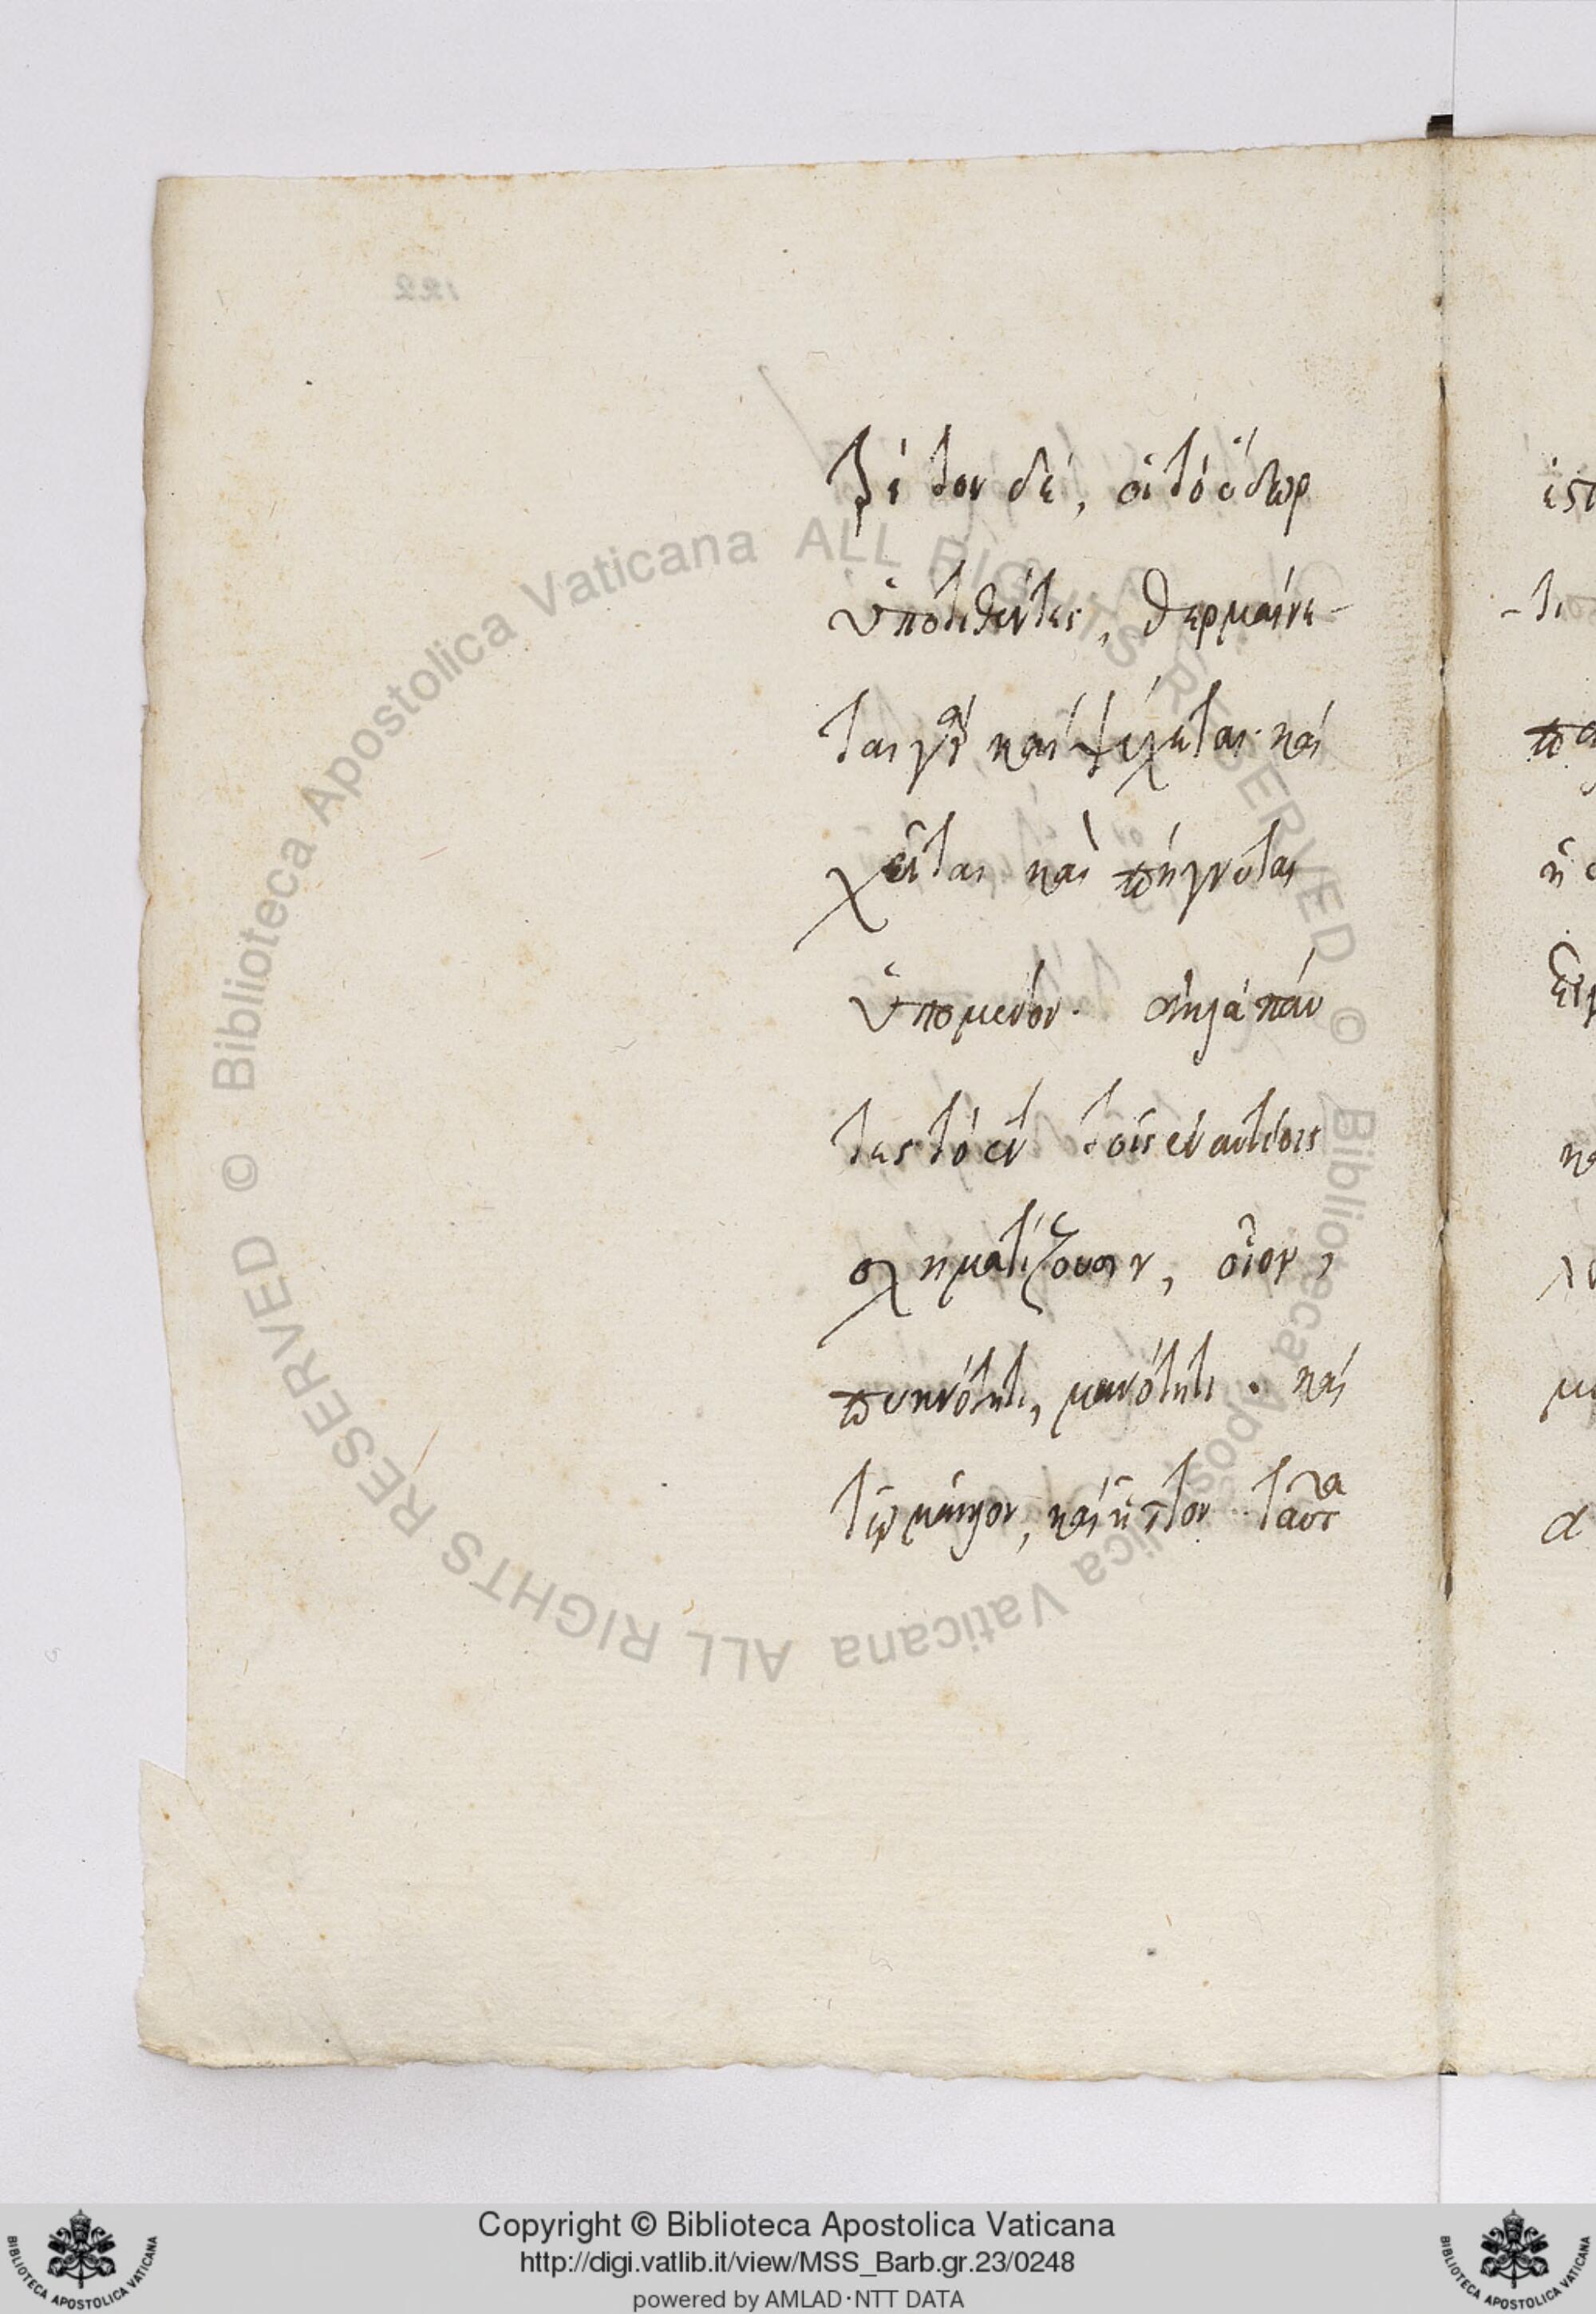 122
ξὺ τον δέ, οἱ τὸ ὕδωρ
ὑποτιθέντες, θερμαίνε-
ται γὰρ καὶ ψύχεται καὶ
χεῖται καὶ πήγνυται
ὑπομένον. οἱ πάν
τες τὸ ἓν τοῖς ἐναντίοις
σχηματίζουσιν, οἷον,
πυκνότητι, μανότητι. καὶ
τῷ μᾶλλον, καὶ ἧττον ταῦτα
© Biblioteca Apostolica Vaticana ALL RIGHTS RESERVED © Biblioteca Apostolica Vaticana ALL RIGHTS RESERVED
Copyright © Biblioteca Apostolica Vaticana
http://digi.vatlib.it/view/MSS_Barb.gr.23/0248
powered by AMLAD·NTT DATA
BIBLIOTECA APOSTOLICA VATICANA
BIBLIOTECA APOSTOLICA VATICANA